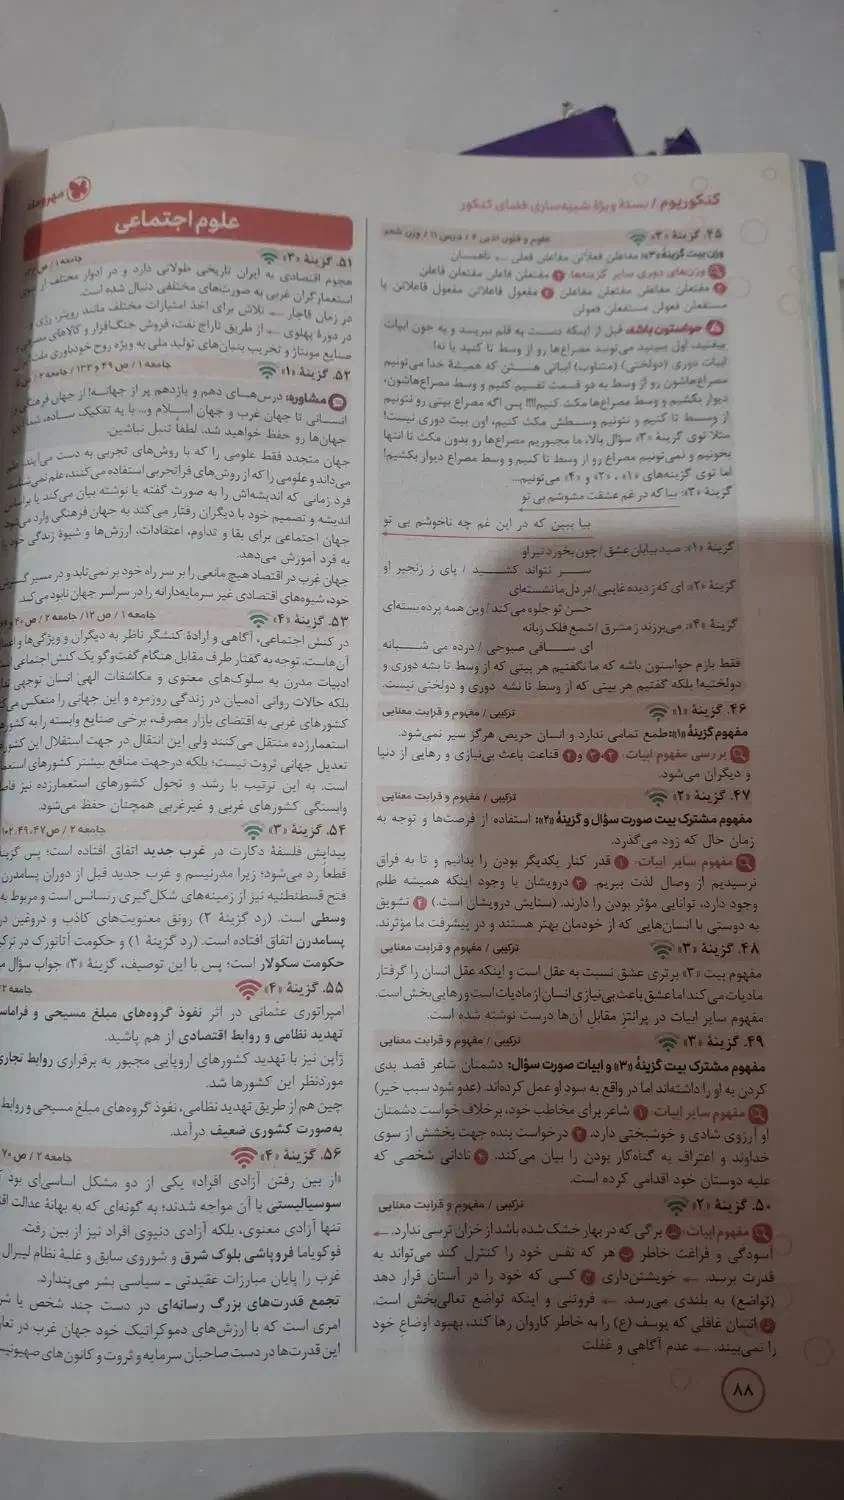 کنکوریوم / بستهٔ ویژهٔ شبیه‌سازی فضای کنکور
مهروماه
۴۵. گزینهٔ «۳» علوم و فنون ادبی ۲ / درس ۱۱ / وزن شعر
وزن بیت گزینهٔ «۳»: مفاعلن فعلاتن مفاعلن فعلن ← ناهمسان
وزن‌های دوری سایر گزینه‌ها: ۱ مفتعلن فاعلن مفتعلن فاعلن
۲ مفتعلن مفاعلن مفتعلن مفاعلن ۴ مفعول فاعلاتن مفعول فاعلاتن یا
مستفعلن فعولن مستفعلن فعولن
حواستون باشه، قبل از اینکه دست به قلم ببرید و به جون ابیات
بیفتید، اول ببینید می‌تونید مصراع‌ها رو از وسط تا کنید یا نه!
ابیات دوری (دولختی) (متناوب) ابیاتی هستن که همیشهٔ خدا می‌تونیم
مصراع‌هاشون رو از وسط به دو قسمت تقسیم کنیم و وسط مصراع‌هاشون،
دیوار بکشیم و وسط مصراع‌ها مکث کنیم!!!! پس اگه مصراع بیتی رو نتونیم
از وسط تا کنیم و نتونیم وسطش مکث کنیم، اون بیت دوری نیست!
مثلاً توی گزینهٔ «۳» سؤال بالا، ما مجبوریم مصراع‌ها رو بدون مکث تا انتها
بخونیم و نمی‌تونیم مصراع رو از وسط تا کنیم و وسط مصراع دیوار بکشیم!
اما توی گزینه‌های «۱»، «۲» و «۴» می‌تونیم...
گزینهٔ «۳»: بیا که در غم عشقت مشوشم بی تو
بیا ببین که در این غم چه ناخوشم بی تو
گزینهٔ «۱»: صید بیابان عشق / چون بخورد تیر او
سر نتواند کشید / پای ز زنجیر او
گزینهٔ «۲»: ای که ز دیده غایبی / در دل ما نشسته‌ای
حسن تو جلوه می‌کند / وین همه پرده بسته‌ای
گزینهٔ «۴»: می‌برزند ز مشرق / شمع فلک زبانه
ای ساقی صبوحی / درده می شبانه
فقط بازم حواستون باشه که ما نگفتیم هر بیتی که از وسط تا بشه دوری و
دولختیه! بلکه گفتیم هر بیتی که از وسط تا نشه دوری و دولختی نیست.
۴۶. گزینهٔ «۱» ترکیبی / مفهوم و قرابت معنایی
مفهوم گزینهٔ «۱»: طمع تمامی ندارد و انسان حریص هرگز سیر نمی‌شود.
بررسی مفهوم ابیات: ۲، ۳ و ۴ قناعت باعث بی‌نیازی و رهایی از دنیا
و دیگران می‌شود.
۴۷. گزینهٔ «۲» ترکیبی / مفهوم و قرابت معنایی
مفهوم مشترک بیت صورت سؤال و گزینهٔ «۲»: استفاده از فرصت‌ها و توجه به
زمان حال که زود می‌گذرد.
مفهوم سایر ابیات: ۱ قدر کنار یکدیگر بودن را بدانیم و تا به فراق
نرسیدیم از وصال لذت ببریم. ۳ درویشان با وجود اینکه همیشه ظلم
وجود دارد، توانایی مؤثر بودن را دارند. (ستایش درویشان است.) ۴ تشویق
به دوستی با انسان‌هایی که از خودمان بهتر هستند و در پیشرفت ما مؤثرند.
۴۸. گزینهٔ «۳» ترکیبی / مفهوم و قرابت معنایی
مفهوم بیت «۳» برتری عشق نسبت به عقل است و اینکه عقل انسان را گرفتار
مادیات می‌کند اما عشق باعث بی‌نیازی انسان از مادیات است و رهایی‌بخش است.
مفهوم سایر ابیات در پرانتز مقابل آن‌ها درست نوشته شده است.
۴۹. گزینهٔ «۳» ترکیبی / مفهوم و قرابت معنایی
مفهوم مشترک بیت گزینهٔ «۳» و ابیات صورت سؤال: دشمنان شاعر قصد بدی
کردن به او را داشته‌اند اما در واقع به سود او عمل کرده‌اند. (عدو شود سبب خیر)
مفهوم سایر ابیات: ۱ شاعر برای مخاطب خود، برخلاف خواست دشمنان
او آرزوی شادی و خوشبختی دارد. ۲ درخواست بنده جهت بخشش از سوی
خداوند و اعتراف به گناه‌کار بودن را بیان می‌کند. ۴ نادانی شخصی که
علیه دوستان خود اقدامی کرده است.
۵۰. گزینهٔ «۲» ترکیبی / مفهوم و قرابت معنایی
مفهوم ابیات: الف برگی که در بهار خشک شده باشد از خزان ترسی ندارد. ←
آسودگی و فراغت خاطر ب هر که نفس خود را کنترل کند می‌تواند به
قدرت برسد. ← خویشتن‌داری ج کسی که خود را در آستان قرار دهد
(تواضع) به بلندی می‌رسد. ← فروتنی و اینکه تواضع تعالی‌بخش است.
د انسان غافلی که یوسف (ع) را به خاطر کاروان رها کند، بهبود اوضاع خود
را نمی‌بیند. ← عدم آگاهی و غفلت
علوم اجتماعی
۵۱. گزینهٔ «۳» جامعه ۱ / ص
هجوم اقتصادی به ایران تاریخی طولانی دارد و در ادوار مختلف از سوی
استعمارگران غربی به صورت‌های مختلفی دنبال شده است.
در زمان قاجار ← تلاش برای اخذ امتیازات مختلف مانند رویتر، رژی و
در دورهٔ پهلوی ← از طریق تاراج نفت، فروش جنگ‌افزار و کالاهای مصرفی
صنایع مونتاژ و تخریب بنیان‌های تولید ملی به ویژه روح خودباوری ملت
۵۲. گزینهٔ «۱» جامعه ۱ / ص ۴۹ و ۱۳۳ / جامعه ۲ / ص
مشاوره: درس‌های دهم و یازدهم پر از جهانه! از جهان فرهنگی و
انسانی تا جهان غرب و جهان اسلام و... با یه تفکیک ساده، شما
جهان‌ها رو حفظ خواهید شد. لطفاً تنبل نباشین.
جهان متجدد فقط علومی را که با روش‌های تجربی به دست می‌آیند، علم
می‌داند و علومی را که از روش‌های فراتجربی استفاده می‌کنند، علم نمی‌شناسد.
فرد زمانی که اندیشه‌اش را به صورت گفته یا نوشته بیان می‌کند یا براساس
اندیشه و تصمیم خود با دیگران رفتار می‌کند به جهان فرهنگی وارد می‌شود.
جهان اجتماعی برای بقا و تداوم، اعتقادات، ارزش‌ها و شیوهٔ زندگی خود را
به فرد آموزش می‌دهد.
جهان غرب در اقتصاد هیچ مانعی را بر سر راه خود بر نمی‌تابد و در مسیر
خود، شیوه‌های اقتصادی غیر سرمایه‌دارانه را در سراسر جهان نابود می‌کند.
۵۳. گزینهٔ «۴» جامعه ۱ / ص ۱۲ / جامعه ۲ / ص ۲۰
در کنش اجتماعی، آگاهی و ارادهٔ کنشگر ناظر به دیگران و ویژگی‌ها و اعمال
آن‌هاست. توجه به گفتار طرف مقابل هنگام گفت‌وگو یک کنش اجتماعی
ادبیات مدرن به سلوک‌های معنوی و مکاشفات الهی انسان توجهی
بلکه حالات روانی آدمیان در زندگی روزمره و این جهانی را منعکس می‌کند
کشورهای غربی به اقتضای بازار مصرف، برخی صنایع وابسته را به کشورهای
استعمارزده منتقل می‌کنند ولی این انتقال در جهت استقلال این کشورها
تعدیل جهانی ثروت نیست؛ بلکه درجهت منافع بیشتر کشورهای
است. به این ترتیب با رشد و تحول کشورهای استعمارزده نیز
وابستگی کشورهای غربی و غیرغربی همچنان حفظ می‌شود.
۵۴. گزینهٔ «۳» جامعه ۲ / ص ۴۷، ۴۹، ۱۰۲
پیدایش فلسفهٔ دکارت در غرب جدید اتفاق افتاده است؛ پس
قطعاً رد می‌شود؛ زیرا مدرنیسم و غرب جدید قبل از دوران پسامدرن
فتح قسطنطنیه نیز از زمینه‌های شکل‌گیری رنسانس است و مربوط به
وسطی است. (رد گزینهٔ ۲) رونق معنویت‌های کاذب و دروغین در
پسامدرن اتفاق افتاده است. (رد گزینهٔ ۱) و حکومت آتاتورک در
حکومت سکولار است؛ پس با این توصیف، گزینهٔ «۳» جواب سؤال
۵۵. گزینهٔ «۴» جامعه ۲
امپراتوری عثمانی در اثر نفوذ گروه‌های مبلغ مسیحی و
تهدید نظامی و روابط اقتصادی از هم پاشید.
ژاپن نیز با تهدید کشورهای اروپایی مجبور به برقراری روابط تجاری
موردنظر این کشورها شد.
چین هم از طریق تهدید نظامی، نفوذ گروه‌های مبلغ مسیحی و روابط
به‌صورت کشوری ضعیف درآمد.
۵۶. گزینهٔ «۴» جامعه ۲ / ص ۷۰
«از بین رفتن آزادی افراد» یکی از دو مشکل اساسی‌ای بود
سوسیالیستی با آن مواجه شدند؛ به گونه‌ای که به بهانهٔ عدالت
تنها آزادی معنوی، بلکه آزادی دنیوی افراد نیز از بین رفت.
فوکویاما فروپاشی بلوک شرق و شوروی سابق و غلبهٔ نظام لیبرال
غرب را پایان مبارزات عقیدتی - سیاسی بشر می‌پندارد.
تجمع قدرت‌های بزرگ رسانه‌ای در دست چند شخص یا
امری است که با ارزش‌های دموکراتیک خود جهان غرب در
این قدرت‌ها در دست صاحبان سرمایه و ثروت و کانون‌های
۸۸